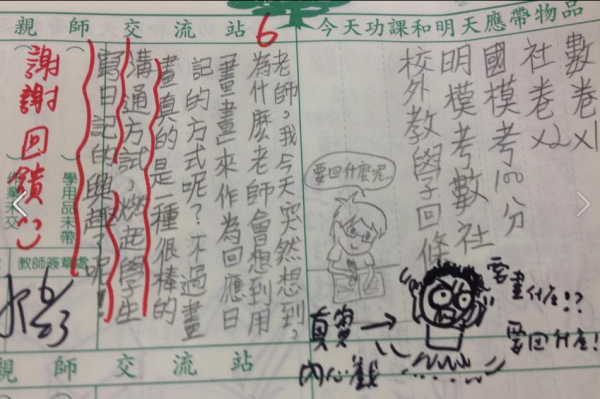 今天功課和明天應帶物品
數卷x1
社卷x2
國模考100分
明模考數社
校外教學回條
要回什麼呢
要畫什麼!?
要回什麼!
真實
內心戲
親師交流站
6
老師,我今天突然想到,
為什麼老師會想到用
「畫畫」來作為回應日
記的方式呢?不過畫
畫真的是一種很棒的
溝通方試,燃起學生
寫日記的興趣呢!
謝謝回饋:)
學用品未帶
作業未交
教師簽章處
6/23
親師交流站